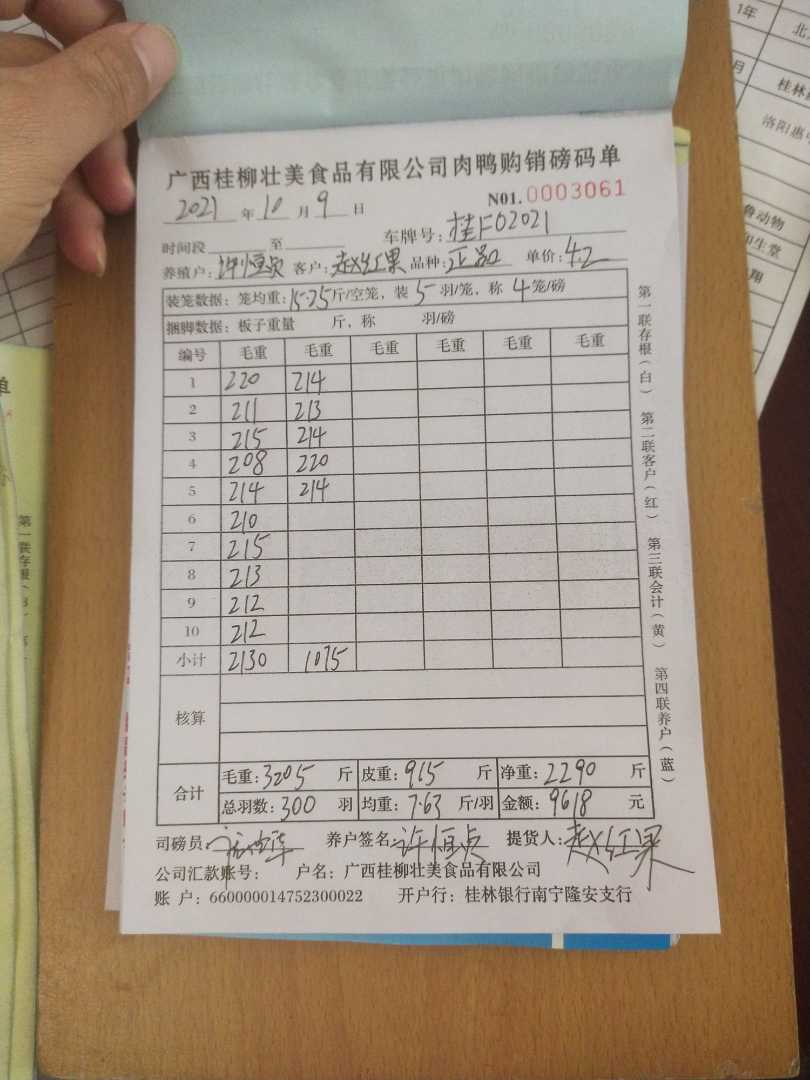 广西桂柳壮美食品有限公司肉鸭购销磅码单
2021 年 10 月 9 日 N01. 0003061
时间段 至 车牌号: 桂F02021
养殖户: 许恒贞 客户: 赵红果 品种: 正品 单价: 4.2
装笼数据: 笼均重: 15.25 斤/空笼, 装 5 羽/笼, 称 4 笼/磅
捆脚数据: 板子重量 斤, 称 羽/磅
编号 毛重 毛重 毛重 毛重 毛重 毛重
1 220 214
2 211 213
3 215 214
4 208 220
5 214 214
6 210
7 215
8 213
9 212
10 212
小计 2130 1075
核算
合计 毛重: 3205 斤 皮重: 915 斤 净重: 2290 斤
总羽数: 300 羽 均重: 7.63 斤/羽 金额: 9618 元
司磅员 养户签名: 许恒贞 提货人: 赵红果
公司汇款账号: 户名: 广西桂柳壮美食品有限公司
账 户: 660000014752300022 开户行: 桂林银行南宁隆安支行
第一联存根(白) 第二联客户(红) 第三联会计(黄) 第四联养户(蓝)
1年
北
月
桂林
洛阳惠
鲁动物
和生堂
翔
单
第一联存根